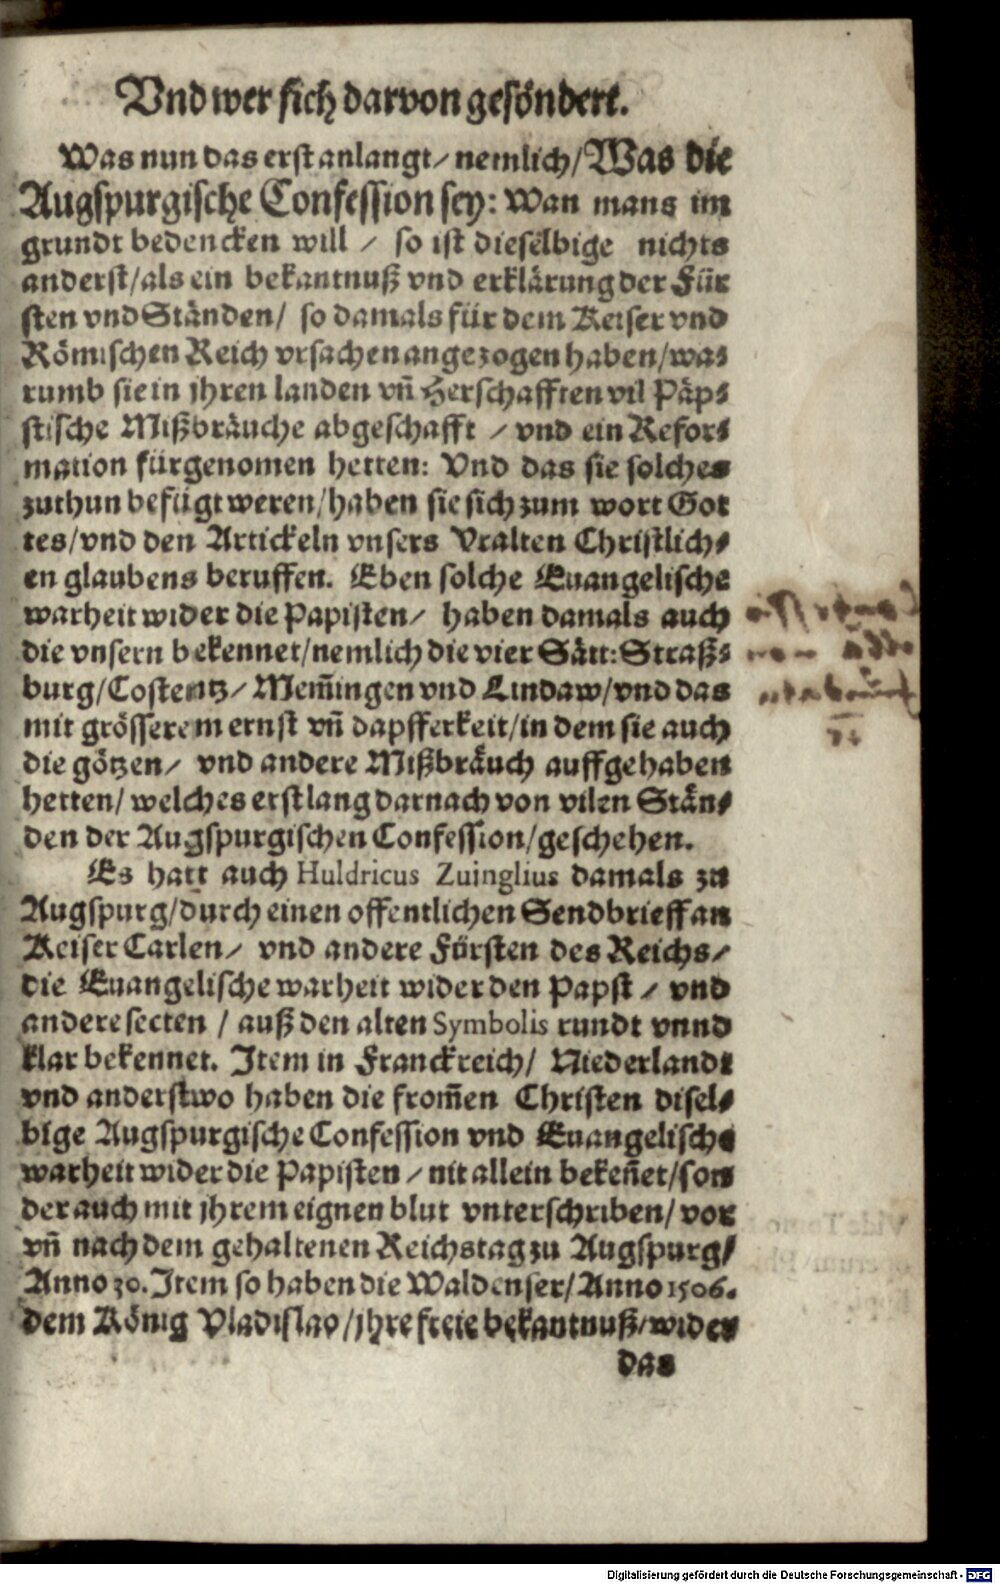 Vnd wer sich darvon gesöndert.
Was nun das erst anlangt/ nemlich/ Was die
Augspurgische Confession sey: Wan mans im
grundt bedencken will / so ist dieselbige nichts
anderst/als ein bekantnuß vnd erklärung der Für
sten vnd Ständen/ so damals für dem Keiser vnd
Römischen Reich vrsachen angezogen haben/wa⸗
rumb sie in jhren landen vñ Herschafften vil Päp⸗
stische Mißbräuche abgeschafft / vnd ein Refor⸗
mation fürgenomen hetten: Vnd das sie solches
zuthun befügt weren/haben sie sich zum wort Got
tes/vnd den Artickeln vnsers Vralten Christlich⸗
en glaubens beruffen. Eben solche Euangelische
warheit wider die Papisten/ haben damals auch
die vnsern bekennet/nemlich die vier Sätt: Straß⸗
burg/Costentz/ Mem̃ingen vnd Lindaw/vnd das
mit grösserem ernst vñ dapfferkeit/in dem sie auch
die götzen/ vnd andere Mißbräuch auffgehaben
hetten/ welches erst lang darnach von vilen Stän⸗
den der Augspurgischen Confession/geschehen.
Es hatt auch Huldricus Zuinglius damals zu
Augspurg/durch einen offentlichen Sendbrieff an
Keiser Carlen/ vnd andere Fürsten des Reichs/
die Euangelische warheit wider den Papst / vnd
andere secten / auß den alten Symbolis rundt vnnd
klar bekennet. Item in Franckreich/ Niederlandt
vnd anderstwo haben die from̃en Christen disel⸗
bige Augspurgische Confession vnd Euangelische
warheit wider die Papisten / nit allein bekeñet/son
der auch mit jhrem eignen blut vnterschriben/ vor
vñ nach dem gehaltenen Reichstag zu Augspurg/
Anno 30. Item so haben die Waldenser/Anno 1506.
dem König Vladislao/jhre freie bekantnuß/wider
das
Digitalisierung gefördert durch die Deutsche Forschungsgemeinschaft - DFG